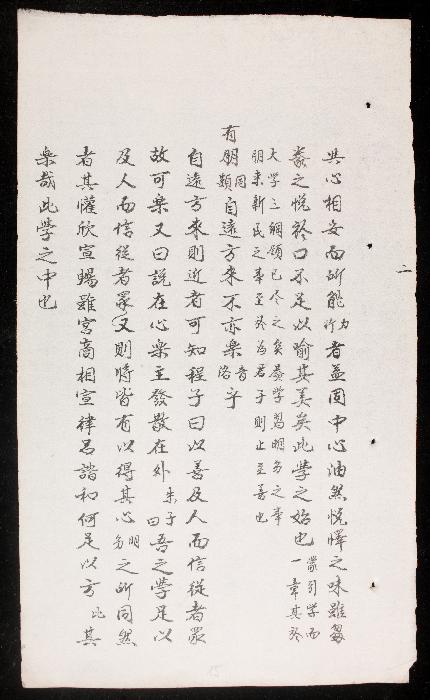 二
其心相安而所能行力者益固中心油然悅懌之味雖芻
豢之悅於口不足以喻其美矣此學之始也蒙引學而一章其於
大學三綱領已尽之矣蓋學習明明德之事
朋来新民之事至於為君子則止至善也
有朋同類自遠方来不亦樂音洛乎
自遠方來則近者可知程子曰以善及人而信從者眾
故可樂又曰説在心樂主發散在外朱子曰吾之學足以
及人而信從者眾又則將皆有以得其心之所同然
者其懽欣宣暢雖宮商相宣律呂諧和何足以方此其
樂哉此學之中也